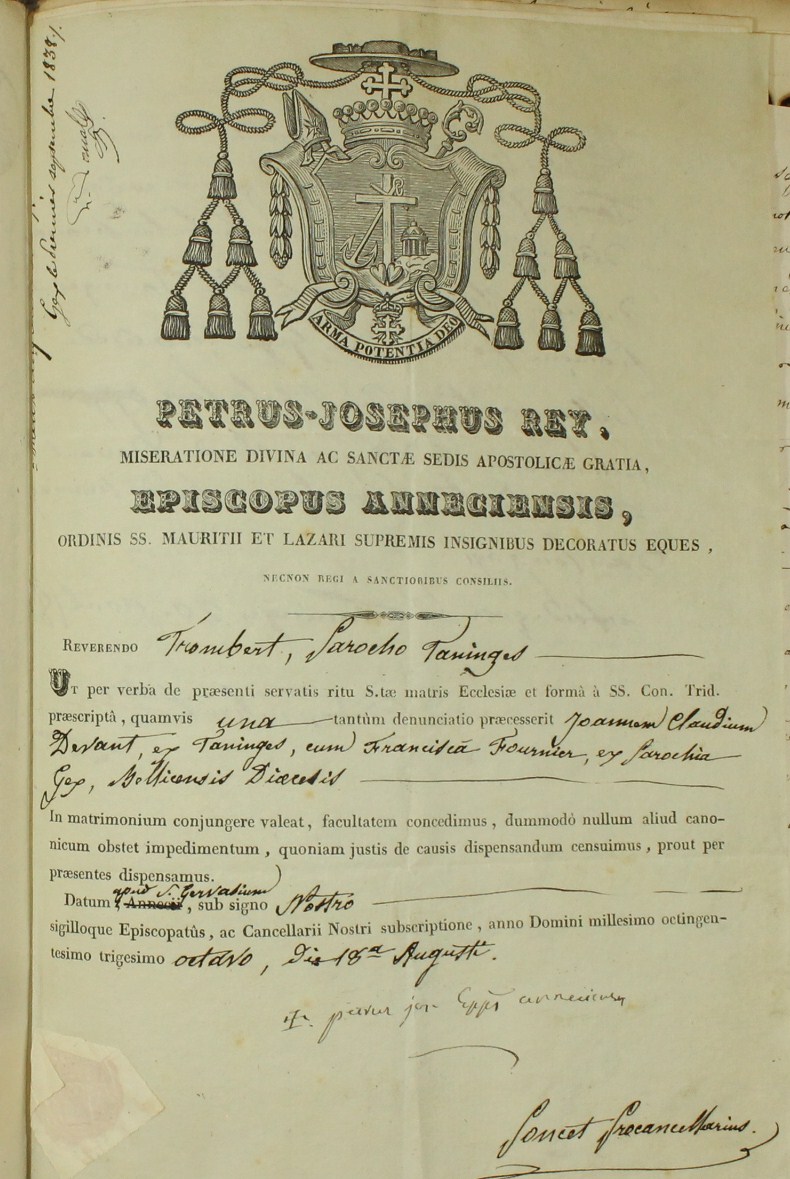 Gex le premier septembre 1838
ARMA POTENTIA DEO
PETRUS-JOSEPHUS REY,
MISERATIONE DIVINA AC SANCTÆ SEDIS APOSTOLICÆ GRATIA,
EPISCOPUS ANNECIENSIS,
ORDINIS SS. MAURITII ET LAZARI SUPREMIS INSIGNIBUS DECORATUS EQUES,
NECNON REGI A SANCTIORIBUS CONSILIIS.
REVERENDO Trombert, Parocho Taninges
UT per verba de præsenti servatis ritu S.tæ matris Ecclesiæ et formâ à SS. Con. Trid.
præscriptâ, quamvis una tantùm denunciatio præcesserit Joannem Claudium
Devant, ex Taninges, cum Franciscâ Fournier, ex Parochia
Gex, Bellicensis Diœcesis
In matrimonium conjungere valeat, facultatem concedimus, dummodò nullum aliud cano-
nicum obstet impedimentum, quoniam justis de causis dispensandum censuimus, prout per
præsentes dispensamus.
apud S. Gervasium
Datum Annecii, sub signo Nostro
sigilloque Episcopatûs, ac Cancellarii Nostri subscriptione, anno Domini millesimo octingen-
tesimo trigesimo octavo, Die 18ª Augusti.
+ petrus jos. Epús anneciensis
Poncet Procancellarius.